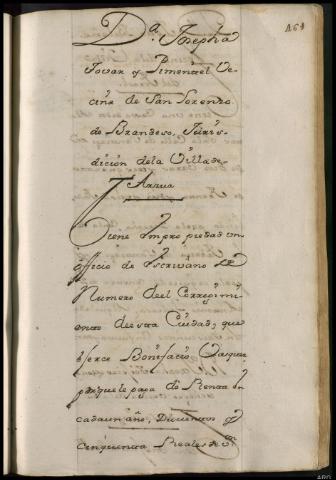 461
Dª. Josepha
Tovar y Pimentel Ve-
cina de San Lorenzo
de Brandeso, Juris-
dicion dela Villa de
Arzua
Tiene Impropiedad un
officio de Escribano de
Numero deel Corregimi-
ento de esta Ciudad, que
exerce Bonifacio Vazquez
porque le paga de Renta en
cada un año, Ducientos y
cinquenta Reales de